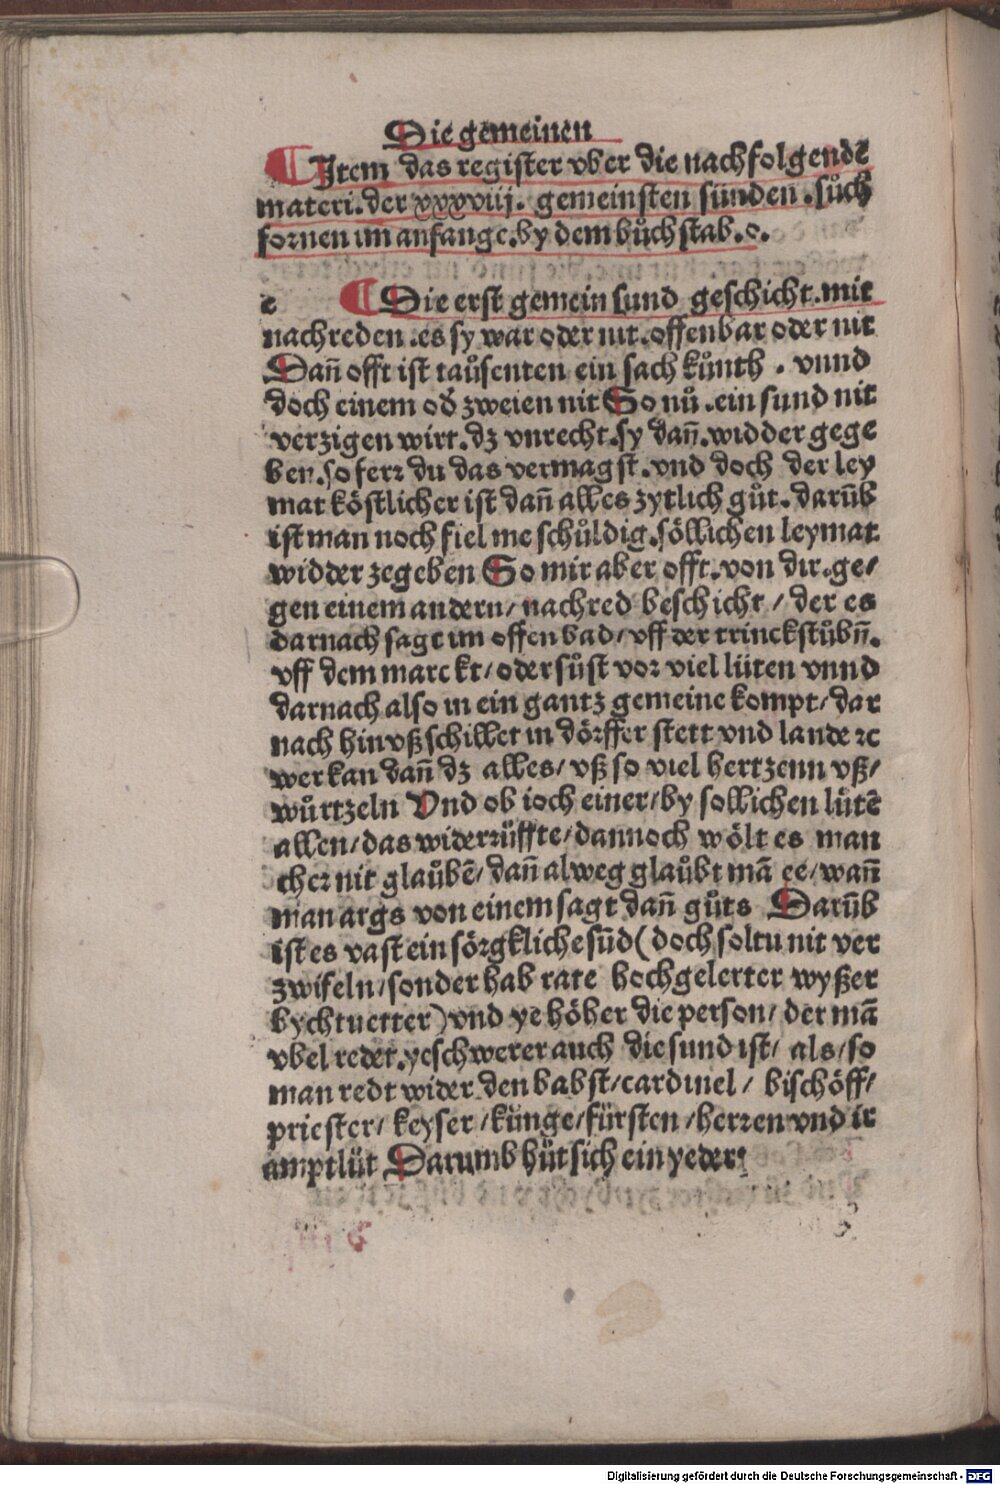 Die gemeinen
¶ Item das register vber die nachfolgendē
materi. der xxxviij. gemeinsten sünden. sůch
fornen im anfange. by dem bůchstab. o.
e ¶ Die erst gemein sund geschicht. mit
nachreden. es sy war oder nit. offenbar oder nit
Dañ offt ist taůsenten ein sach kůnth. vnnd
doch einem od̓ zweien nit So nů. ein sund nit
verzigen wirt. dz vnrecht. sy dañ. widder gege
ben. so ferr du das vermagst. vnd doch der ley
mat köstlicher ist dañ alles zytlich gůt. darūb
ist man noch fiel me schůldig. söllichen leymat
widder zegeben So mir aber offt. von dir. ge/
gen einem andern/ nachred beschicht/ der es
darnach sagt im offen bad/ vff der trinckstůbñ.
vff dem marckt/ oder sůst vor viel lüten vnnd
darnach also in ein gantz gemeine kompt/ dar
nach hinvß schillet in dörffer stett vnd lande ⁊c
wer kan dañ dz alles/ vß so viel hertzenn vß/
wůrtzeln Vnd ob ioch einer/ by sollichen lütē
allen/ das widerrüffte/ dannoch wölt es man
cher nit glaůbē/ dañ alweg glaůbt mā ee/ wañ
man args von einem sagt dañ gůts Darūb
ist es vast ein sörgkliche sūd (doch soltu nit ver
zwifeln/ sonder hab rate hochgelerter wyßer
bychtuetter) vnd ye höher die person/ der mā
vbel redet. ye schwerer auch die sund ist/ als/ so
man redt wider den babst/ cardinel/ bischöff/
priester/ keyser/ künge/ fürsten/ herren vnd ir
amptlüt Darumb hüt sich ein yeder
Digitalisierung gefördert durch die Deutsche Forschungsgemeinschaft - DFG